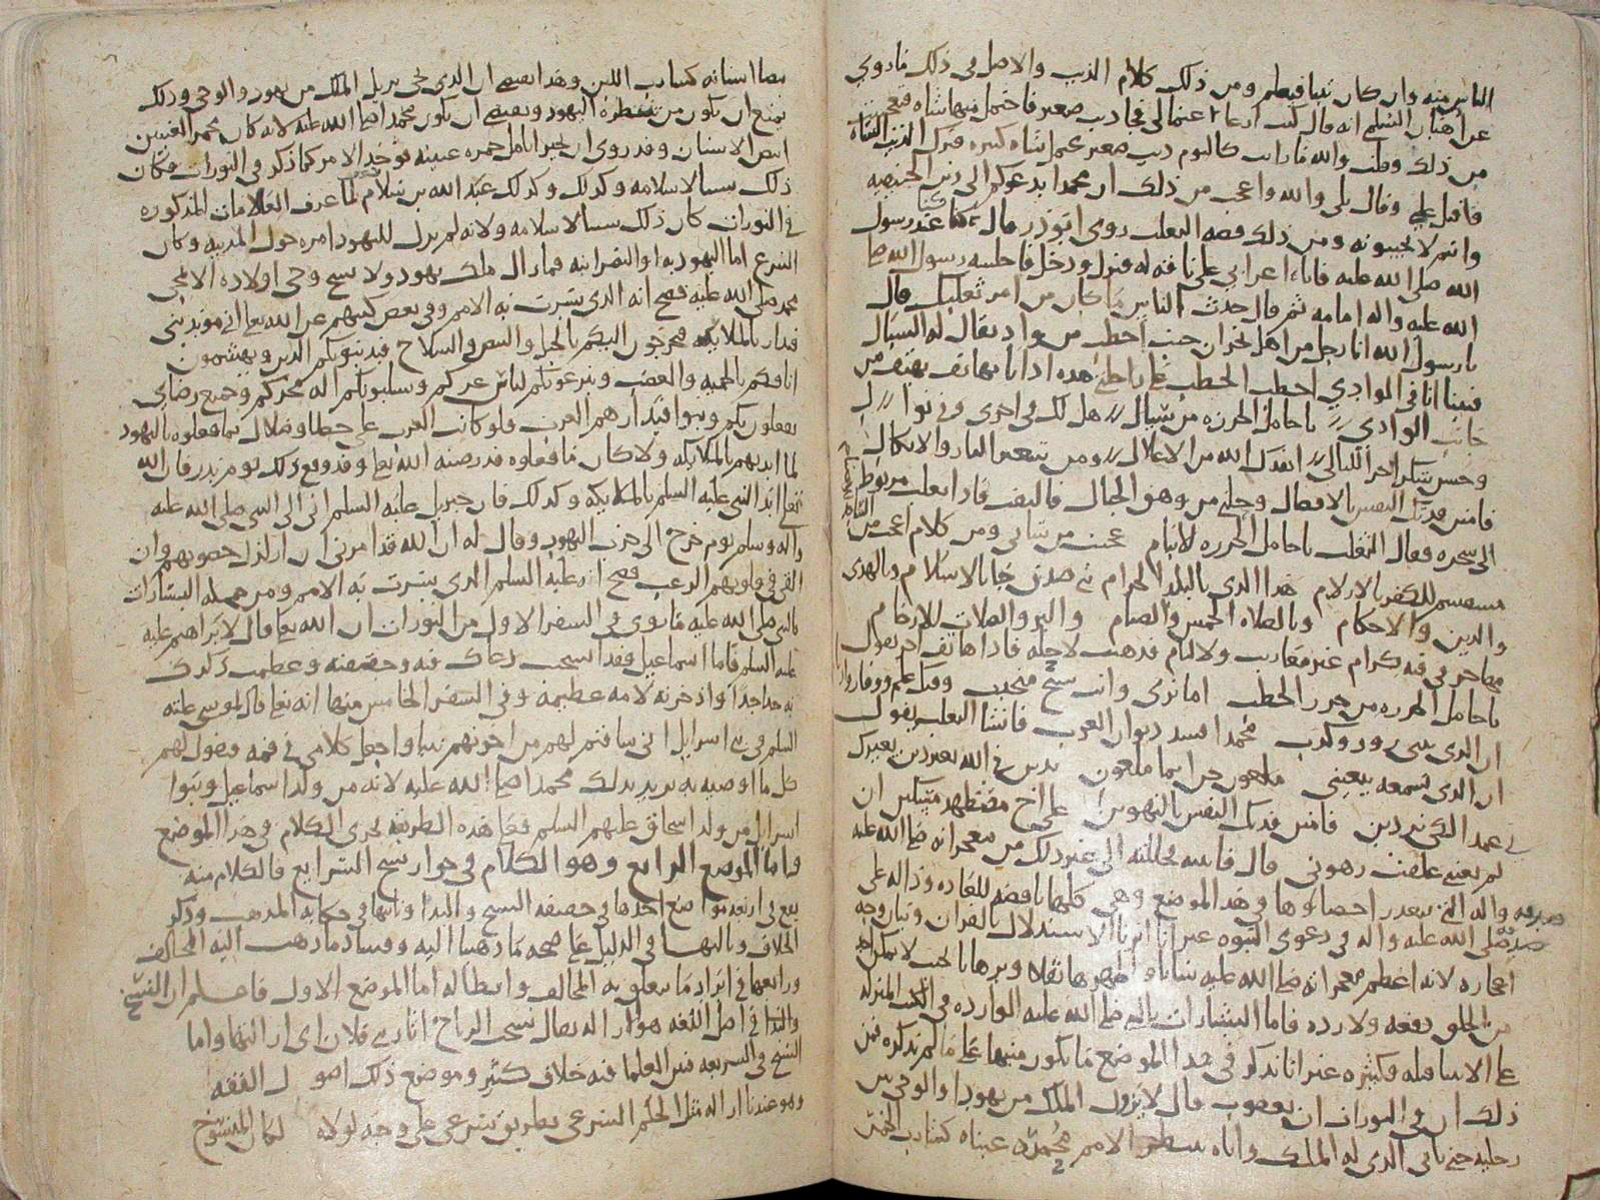 الناس منه وان كان نبيا فيعلم ومن ذلك كلام الذيب والاصل في ذلك ما روي
عن اهبان السلمي انه قال كنت ارعا غنما لي فجا ذيب صغير فاختمل منها شاه فتعجبت
من ذلك وقلت والله ما رايت كاليوم ذيب صغير يحمل شاه كبيره فترك الذيب الشاه
فاقبل علي وقال بلى والله واعجب من ذلك ان محمدا يدعوكم الى دين الحنيفيه
وانتم لا تجيبونه ومن ذلك قصه الثعلب روى ابو ذر قال كنا عند رسول
الله صلى الله عليه فاتاه اعرابي على ناقه له فنزل ودخل فاجلسه رسول الله صلى
الله عليه واله امامه ثم قال حدث الناس ما كان من امر ثعلبك قال
يا رسول الله انا رجل من اهل نجران جيت احطب من واد يقال له السيال
فبينا انا في الوادي احطب الحطب على راحلتي هذه اذ انا بهاتف يهتف من
جانب الوادي يا حامل الجرزه من سيال هل لك في اجر وفي نوال
وحسن شكر اخر الليالي انقذك الله من الاغلال ومن سعير النار والانكال
فامنن فدتك النفس بالافضال وحلني من وهق الحبال فالتفت فاذا ثعلب مربوط
الى شجره فقال الثعلب يا حامل الجرزه للايتام عجبت من شاني ومن كلام اعجب من
مستقسم للكفر بالازلام هذا الذي بالبلد الحرام نبي صدق جا بالاسلام وبالهدى
والدين والاحكام وبالصلاه الخمس والصيام والبر والصلات للارحام
مهاجر في فتيه كرام غير معازيب ولا لئام فذهبت لاحله فاذا هاتف اخر يقول
يا حامل الجرزه من جرز الحطب اما ترى وانت شيخ منجب
ان الذي ينبيك زور وكذب محمد افسد ديوان العرب فانشا الثعلب يقول
ان الذي تسمعه يبغيني ملعون جن ايما ملعون يدين في الله بغير دين يعبدك
لم يغنه علقت رهوني قال فاتيته فحللته الى غير ذلك من معجزاته صلى الله عليه
واله التي يتعذر احصاوها في هذا الموضع وهي كلها ناقضه للعاده وداله على
صدقه صلى الله عليه واله في دعوى النبوه غير انا اثرنا الاستدلال بالقران وبيان وجه
اعجازه لانه اعظم معجزاته صلى الله عليه شانا واظهرها نقلا وبرهانا بحيث لا يمكن احد
من الخلق دفعه ولا رده فاما البشارات بالنبي صلى الله عليه الوارده في الكتب المنزله
على الانبيا قبله فكثيره غير انا نذكر في هذا الموضع ما يكون منبها على ما لم نذكره فمن
ذلك ان في التورات ان يعقوب قال لا يزول الملك من يهودا والوحي من
رجليه حتى ياتي الذي له الملك واياه ينتظر الامم محمره عيناه كشارب الخمر
بيضا اسنانه كشارب اللبن وهذا يقتضي ان الذي يجي يزيل الملك من يهود والوحي وذلك
يمنع ان يكون من تنتظره اليهود ويقتضي ان يكون محمدا صلى الله عليه لانه كان محمر العينين
ابيض الاسنان وقد روى ان بحيرا تامل حمره عينيه فوجد الامر كما ذكر في التورات فكان
ذلك سببا لاسلامه وكذلك وكذلك عبد الله بن سلام لما عرف العلامات المذكوره
في التورات كان ذلك سببا لاسلامه ولانه لم يزل لليهود امره حول المدينه وكان
الشرع اما اليهوديه او النصرانيه فما زال ملك يهود ولا نسخ وحي اولاده الا بمجي
محمد صلى الله عليه فصح انه الذي بشرت به الامم وفي بعض كتبهم عن الله تعالى اني مويد بني
قيدار بالملايكه فيخرجون اليكم بالخيل والبيض والسلاح فيدينوكم الدين ويهشمون
انافكم بالحميه والغضب وينزعون لباس عزكم وسلبونكم اله فخركم وجميع رضاي
يفعلون بكم وبنوا قيدار هم العرب ولو كانت العرب على خطا وضلال بما فعلوه باليهود
لما ايدهم بالملايكه ولا كان ما فعلوه قد رضيه الله تعالى وقد وقع ذلك يوم بدر فان الله
تعالى ايد النبي عليه السلم بالملايكه وكذلك فان جبريل عليه السلم اتى الى النبي صلى الله عليه
واله وسلم يوم خرج الى حرب اليهود وقال له ان الله قد امرني ان ازلزل حصونهم وان
القي في قلوبهم الرعب فصح انه عليه السلم الذي بشرت به الامم ومن جمله البشارات
بالنبي صلى الله عليه ما روي في السفر الاول من التورات ان الله تعالى قال لابراهيم عليه
عليه السلم فاما اسماعيل فقد استجبت دعاك فيه وعظمت ذكرك
به جدا جدا واذخرته لامه عظيمه وفي السفر الخامس منها انه تعالى قال لموسى عليه
السلم في بني اسرايل اني ساقيم لهم من اخوتهم نبيا واجعل كلامي في فمه فيقول لهم
كل ما اوصيه به يريد بذلك محمدا صلى الله عليه لانه من ولد اسماعيل وبنوا
اسرايل من ولد اسحاق عليهم السلم فعلى هذه الطريقه يجرى الكلام في هذا الموضع
واما الموضع الرابع وهو الكلام في جواز نسخ الشرايع فالكلام منه
يقع في اربعه مواضع احدها في حقيقه النسخ والبدا وثانيها في حكايه المذهب وذكر
الخلاف وثالثها في الدليل على صحه ما ذهبنا اليه وفساد ما ذهب اليه المخالف
ورابعها في ايراد ما يتعلق به المخالف وابطاله اما الموضع الاول فاعلم ان النسخ
والبدا في اصل اللغه هو ازاله يقال نسخت الرياح اثار بني فلان اي ازالتها واما
النسخ في الشريعه فبين العلما فيه خلاف كثير وموضع ذلك اصول الفقه
وهو عندنا ازاله مثل الحكم الشرعي بطريق شرعي على وجه لولاه لكان المنسوخ